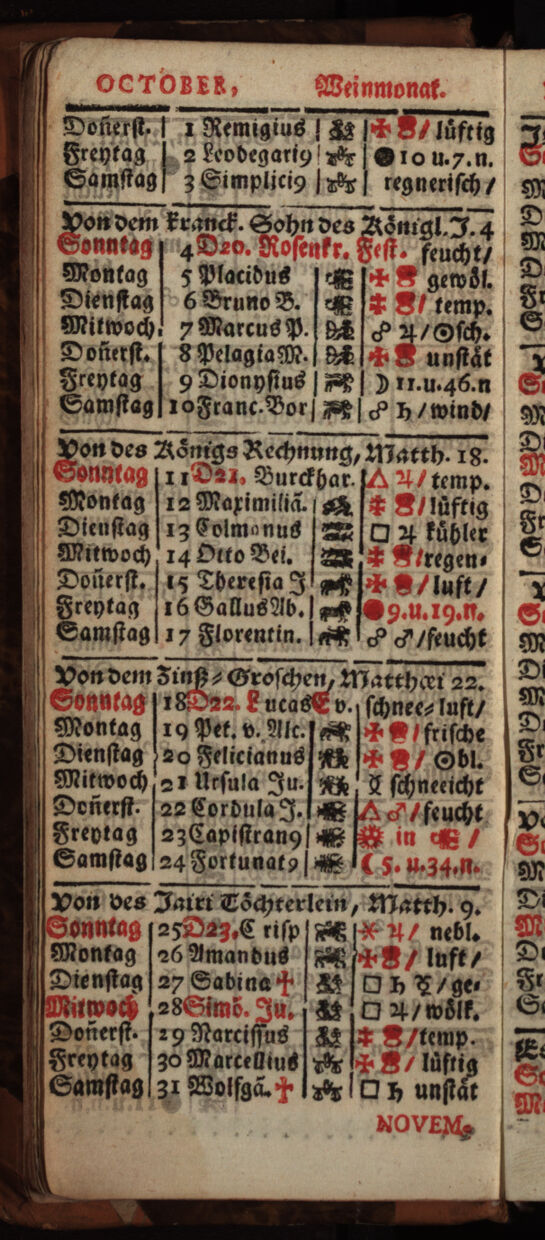 OCTOBER, Weinmonat.
Doñerst. 1 Remigius lüftig
Freytag 2 Leodegari9 10 u. 7. n.
Samstag 3 Simplici9 regnerisch /
Von dem kranck. Sohn des Königl. J. 4
Sonntag 4 D20. Rosenkr. Fest. feucht/
Montag 5 Placidus gewöl.
Dienstag 6 Bruno B. / temp.
Mitwoch. 7 Marcus P. ☍ ♃ / ☉sch.
Doñerst. 8 Pelagia M. unstät
Freytag 9 Dionysius ☽ 11. u. 46. n
Samstag 10 Franc. Bor ☍ ♄ / wind/
Von des Königs Rechnung, Matth. 18.
Sonntag 11 D21. Burckhar. △ ♃ / temp.
Montag 12 Maximiliã. / lüftig
Dienstag 13 Colmanus □ ♃ kühler
Mitwoch 14 Otto Bei. /regen⸗
Doñerst. 15 Theresia J / luft /
Freytag 16 Gallus Ab. 9. u. 19. n.
Samstag 17 Florentin. ☍ ♂ /feucht
Von dem Zinß⸗Groschen, Matthæi 22.
Sonntag 18 D22. Lucas Ev. schnee⸗luft/
Montag 19 Pet. v. Alc. / frische
Dienstag 20 Felicianus / ☉bl.
Mitwoch 21 Ursula Ju. ☿ schneeicht
Doñerst. 22 Cordula J. △ ♂ /feucht
Freytag 23 Capistran9 in /
Samstag 24 Fortunat9 ☾ 5. u. 34. n.
Von des Jairi Töchterlein, Matth. 9.
Sonntag 25 D23. Crisp ⚹ ♃ / nebl.
Montag 26 Amandus / luft /
Dienstag 27 Sabina ✝ □ ♄ ☿ /ge⸗
Mitwoch 28 Simõ. Ju. □ ♃ /wölk.
Doñerst. 29 Narcissus /temp.
Freytag 30 Marcellius / lüftig
Samstag 31 Wolfgã. ✝ □ ♄ unstät
NOVEM⸗